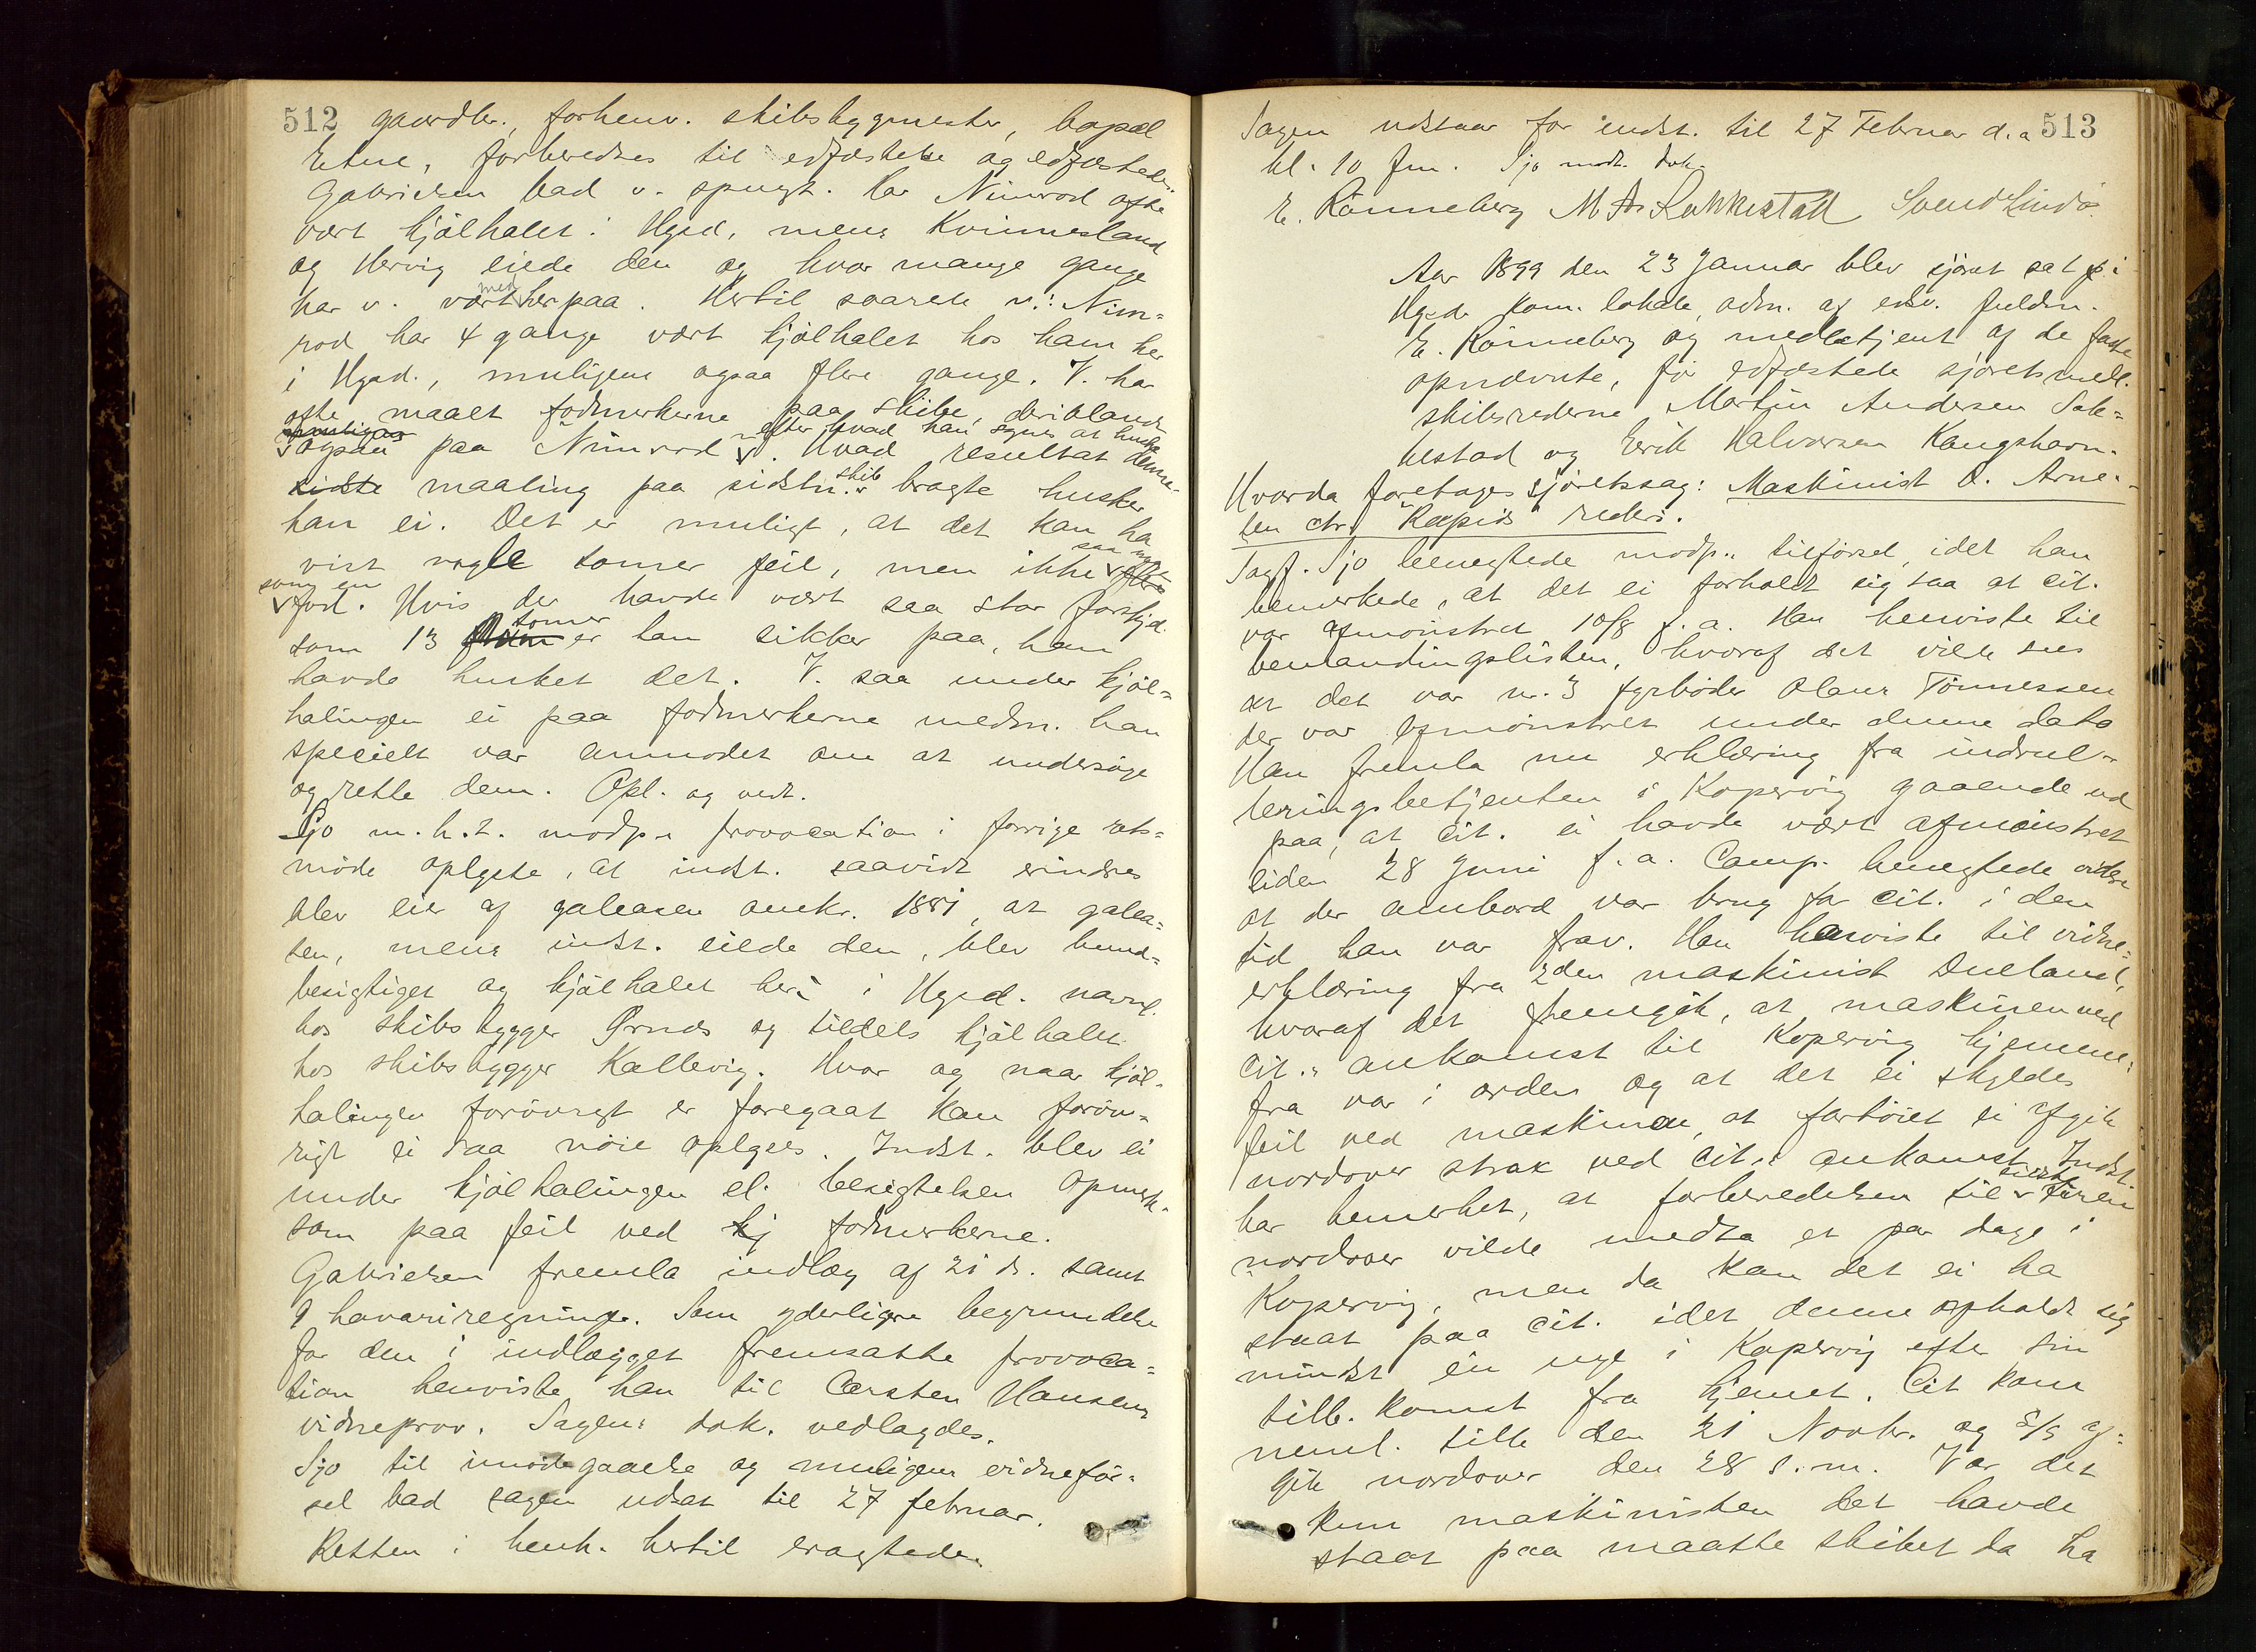 512 gaardbr., forhenv. skibsbygmester, bopæl
Etne, forberedtes til edfæstelse og edfæstedes.
Gabrielsen bad v. spurgt. Har Nimrod ofte
vært kjølhalet i Hgsd, mens Kvinnesland
og Hervig eiede den og hvor mange gange
har v. vært med herpaa. Hertil svarede v.: Nim=
rod har 4 gange vært kjølhalet hos ham her
i Hgsd., muligens ogsaa flere gange. V. har
ofte maalt fodmerkerne paa skibe, deriblandt
ogsaa paa Nimrod efter hvad han synes at huske. Hvad resultat denne
sidste maaling paa sidstn. skib bragte husker
han ei. Det er muligt, at det kan ha
vist nogle tomer feil, men ikke saa meget
som en fod. Hvis der havde vært saa stor forskjel
som 13 tomer er han sikker paa, han
havde husket det. V. saa under kjøl=
halingen ei paa fodmerkerne medm. han
specielt var anmodet om at undersøge
og rette dem. Opl. og vedt.
Sjo m.h.t. modp.s provocation i forrige rets=
møde oplyste, at indst. saavidt erindres
blev eier af galeasen omkr. 1881, at galea=
sen, mens indst. eiede den, blev bund=
besigtiget og kjølhalet her i Hgsd. navnl.
hos skibsbygger Ørnes og tildels kjølhalet
hos skibsbygger Kallevig. Hvor og naar kjøl=
halingen forøvrigt er foregaat kan forøv=
rigt ei saa nøie oplyses. Indst. blev ei
under kjølhalingen el. besigtelsen opmerk=
som paa feil ved kj fodmerkerne.
Gabrielsen fremla indlæg af 21 ds. samt
9 havariregninger. Som yderligere begrundelse
for den i indlægget fremsatte provoca=
tion henviste han til Carsten Hansens
vidneprov. Sagens dok. vedlagdes.
Sjo til imødegaaelse og muligens vidneför=
sel bad sagen udsat til 27 februar.
Retten i henh. hertil eragtede:
Sagen udstaar for indst. til 27 Februar d.a. 513
kl. 10 fm. Sjo modt. dok.
E. Rönneberg M A Lukkestad Svend Lindø
Aar 1899 den 23 Januar blev sjøret sat i
Hgsd. kom. lokale, adm. af edsv. fuldm.
E. Rönneberg og medbetjent af de faste
opnævnte, før edfæstede sjøretsmedl.
skibsrederne Martin Andersen Sak=
kestad og Erik Halvorsen Kangshavn.
Hvorda foretoges sjøretssag: Maskinist O. Arne=
sen ctr. "Rapids" rederi.
Sagf. Sjo benegtede modp.s tilførsel, idet han
bemerkede, at det ei forholdt sig saa at cit.
var afmønstret 10/8 f.a. Han henviste til
bemandingslisten, hvoraf det vilde sees
at det var nr. 3 fyrbøder Olaus Tönnessen
der var afmønstret under denne dato
Han fremla nu erklæring fra indrul=
leringsbetjenten i Kopervig gaaende ud
paa, at cit. ei havde vært afmønstret
siden 28 Juni f.a. Comp. benegtede videre
at der ombord var brug for cit. i den
tid han var frav. Han henviste til vidne=
erklæring fra 2den maskinist Dueland,
hvoraf det fremgik, at maskinen ved
cit.s ankomst til Kopervig hjemme=
fra var i orden og at det ei skyldes
feil ved maskinen, at fartøiet ei afgik
nordover strax ved cit.s ankomst. Indst.
har bemerket, at forberedelsen til turen
nordover vilde medta et par dage i
Kopervig, men da kan det ei ha
staat paa cit. idet denne opholdt sig
mindst én uge i Kopervig efter sin
tilb. komst fra hjemmet. Cit kom
neml. tilb den 21 Novbr. og S/S af=
gik nordover den 28 s.m. Var det
kun maskinisten det havde
staat paa maatte skibet da ha